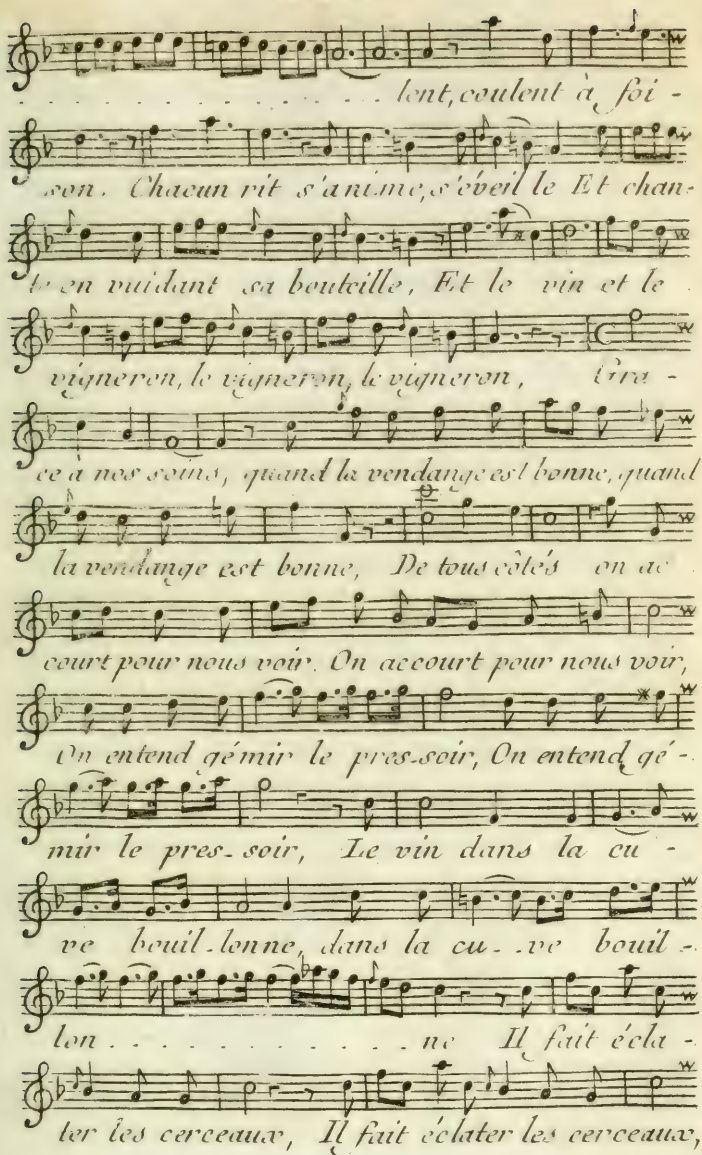 . . . . . . . . . . . . . . lent, coulent à foi -
son. Chacun rit s'anime, s'éveil le Et chan-
te en vuidant sa bouteille, Et le vin et le
vigneron, le vigneron, le vigneron, Gra -
ce à nos soins, quand la vendange est bonne, quand
la vendange est bonne, De tous côtés on ac
court pour nous voir. On accourt pour nous voir,
On entend gémir le pres-soir, On entend gé-
mir le pres-soir, Le vin dans la cu -
ve bouil-lonne, dans la cu-ve bouil -
lon . . . . . . . . . . . ne Il fait écla -
ter les cerceaux, Il fait éclater les cerceaux,